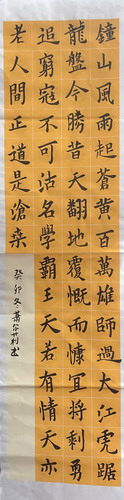 鐘山風雨起蒼黄百萬雄師過大江虎踞
龍盤今勝昔天翻地覆慨而慷宜将剩勇
追窮寇不可沽名學霸王天若有情天亦
老人間正道是滄桑
癸卯冬蕭莉書